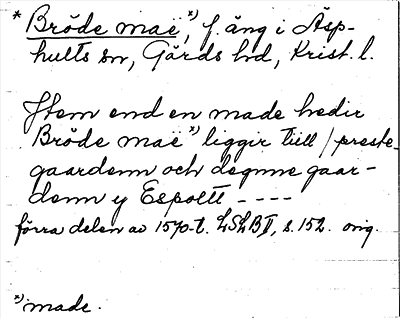 * Bröde maë,*) f. äng i Äsp-
hults sn, Gärds hd, Krist. l.
Jtem end en made hedir
Bröde maë*) liggir till / preste-
gaardenn och degnne gaar-
denn y Espoltt - - - -
förra delen av 1570-t. LSLB II, s. 152. orig.
*) made.